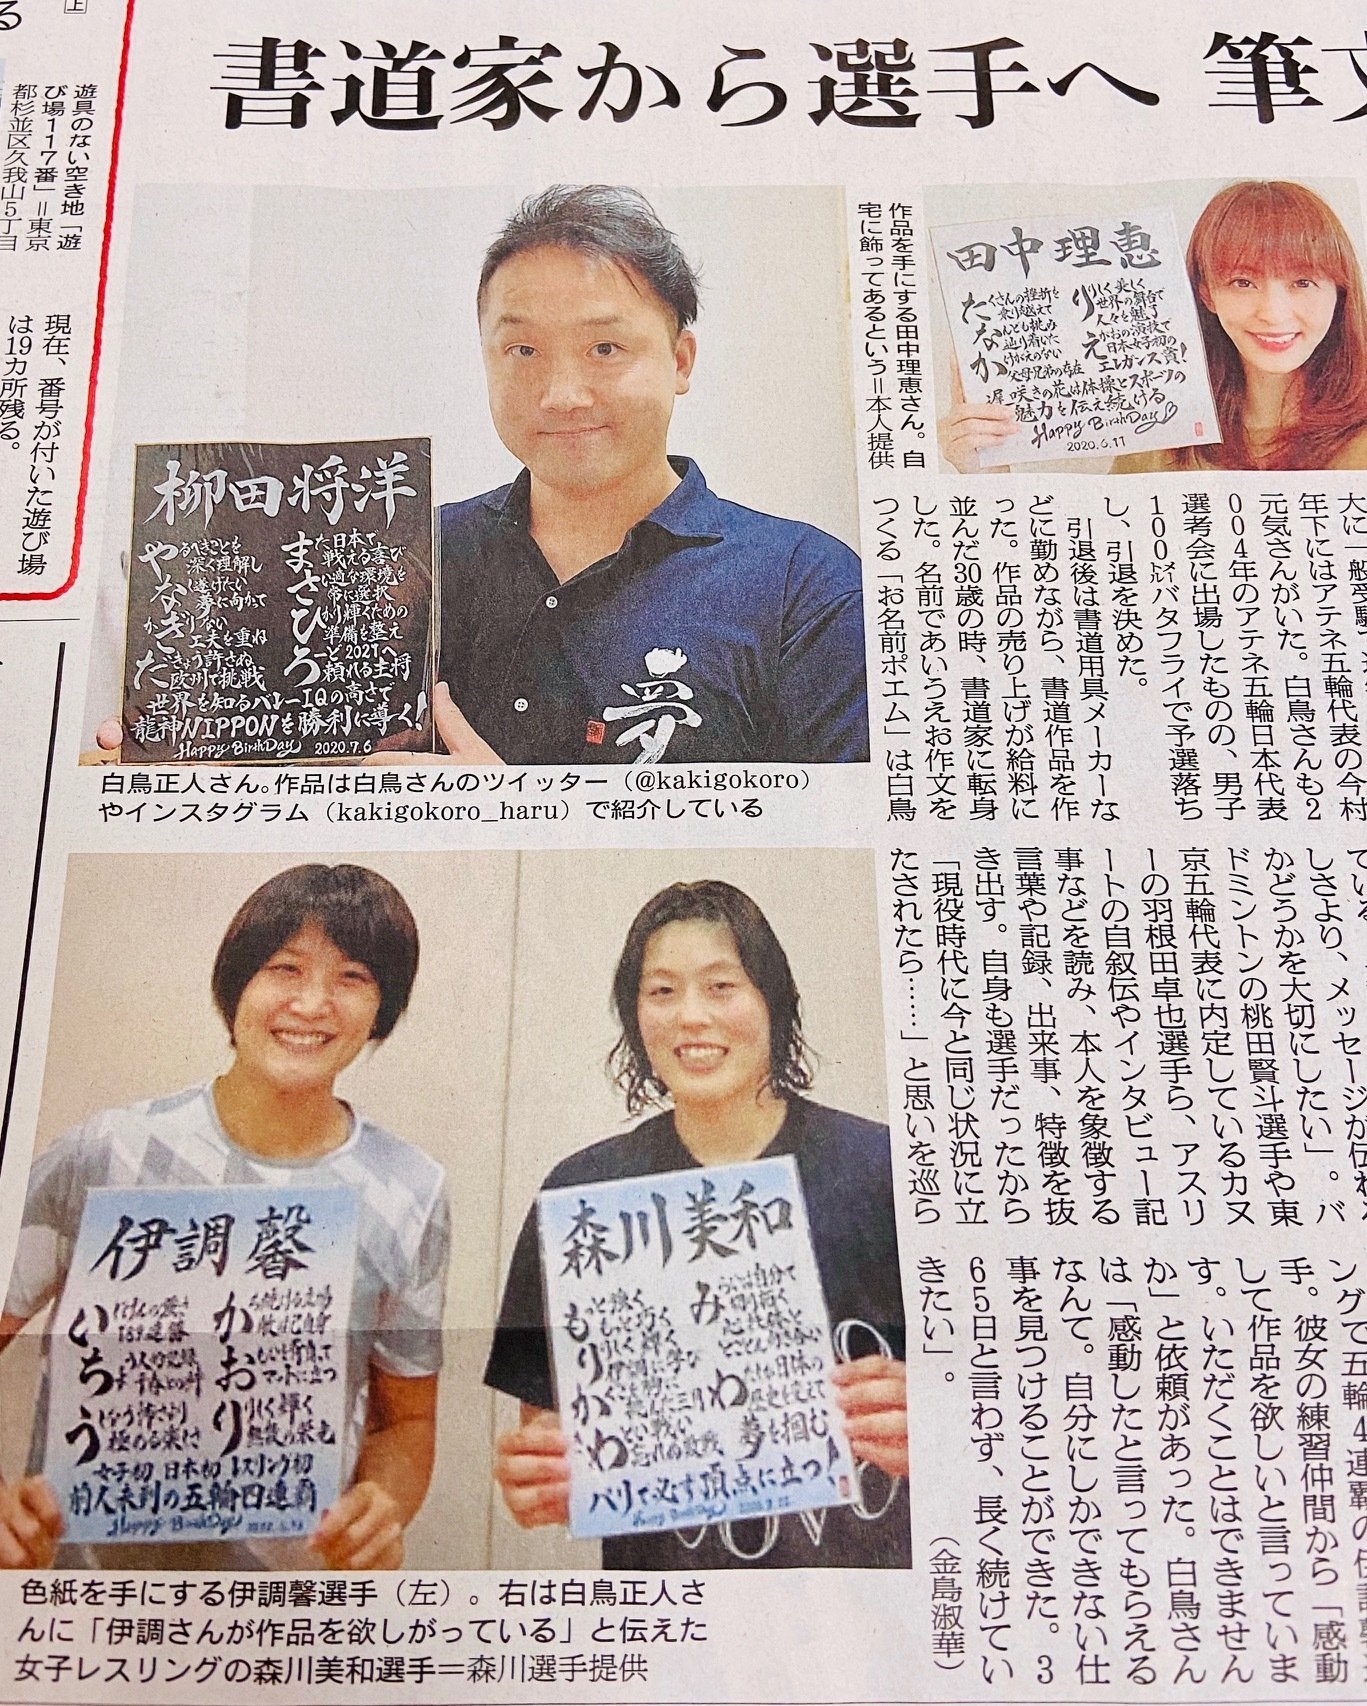 書道家から選手へ 筆文
上
遊具のない空き地「遊
び場１１７番」＝東京
都杉並区久我山５丁目
現在、番号が付いた遊び場
は19カ所残る。
柳田将洋
やるべきことを
深く理解し
なし遂げたい
夢に向かて
かぎりない
工夫を重ね
欧州で挑戦
また日本で
戦える喜び
最適な環境を
常に選択
ひかり輝くための
準備を整え
ロード2021へ
頼れる主将
世界を知るバレーIQの高さで
龍神NIPPONを勝利に導く！
Happy BirthDay 2020.7.6
夢
白鳥正人さん。作品は白鳥さんのツイッター（@kakigokoro）
やインスタグラム（kakigokoro_haru）で紹介している
田中理恵
たくさんの挫折を
乗り越えて
なんども挑み
辿り着いた
かけがえのない
父母兄弟の存在
りりしく美しく
世界の舞台で
人々を魅了
えがおの演技で
日本女子初の
エレガンス賞！
遅咲きの花は体操とスポーツの
魅力を伝え続ける
Happy BirthDay
2020.6.11
作品を手にする田中理恵さん。自
宅に飾ってあるという＝本人提供
年下にはアテネ五輪代表の今村
元気さんがいた。白鳥さんも２
００４年のアテネ五輪日本代表
選考会に出場したものの、男子
１００㍍バタフライで予選落ち
し、引退を決めた。
引退後は書道用具メーカーな
どに勤めながら、書道作品を作
った。作品の売り上げが給料に
並んだ30歳の時、書道家に転身
した。名前であいうえお作文を
つくる「お名前ポエム」は白鳥
しさより、メッセージが伝わる
かどうかを大切にしたい」。バ
ドミントンの桃田賢斗選手や東
京五輪代表に内定しているカヌ
ーの羽根田卓也選手ら、アスリ
ートの自叙伝やインタビュー記
事などを読み、本人を象徴する
言葉や記録、出来事、特徴を抜
き出す。自身も選手だったから
「現役時代に今と同じ状況に立
たされたら……」と思いを巡ら
ングで五輪４連覇の伊調馨選
手。彼女の練習仲間から「感動
して作品を欲しいと言っていま
す。いただくことはできません
か」と依頼があった。白鳥さん
は「感動したと言ってもらえる
なんて。自分にしかできない仕
事を見つけることができた。３
６５日と言わず、長く続けてい
きたい」。
（金島淑華）
伊調馨
女子初、日本初、レスリング初
前人未到の五輪四連覇
Happy BirthDay
森川美和
夢を掴む
パリで必ず頂点に立つ！
Happy BirthDay
色紙を手にする伊調馨選手（左）。右は白鳥正人さ
んに「伊調さんが作品を欲しがっている」と伝えた
女子レスリングの森川美和選手＝森川選手提供